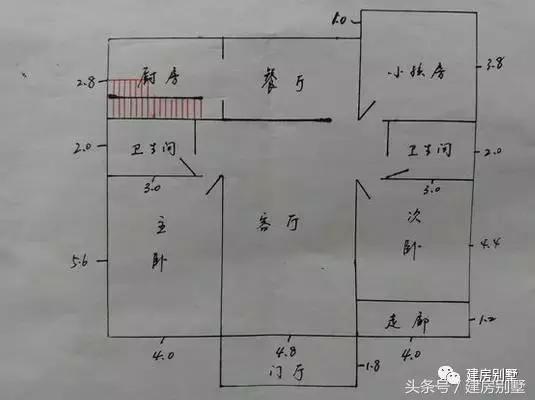 1.0
厨房 餐厅 小孩房
2.8 3.8
2.0 卫生间 卫生间 2.0
3.0 3.0
主卧 客厅 次卧
5.6 4.4
走廊 1.2
4.0 4.8 4.0
门厅 1.8
建房别墅
头条号/建房别墅